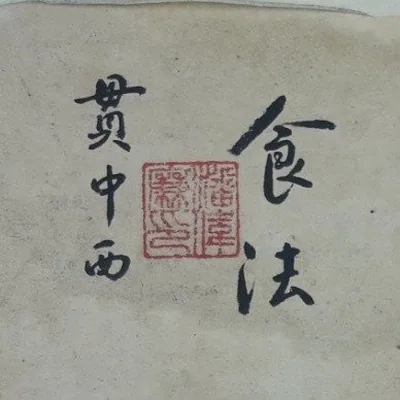 食法
貫中西